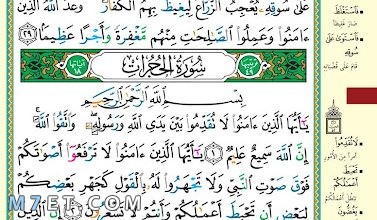 عَلَىٰ سُوقِهِۦ يُعْجِبُ ٱلزُّرَّاعَ لِيَغِيظَ بِهِمُ ٱلْكُفَّارَ ۗ وَعَدَ ٱللَّهُ ٱلَّذِينَ
ءَامَنُوا۟ وَعَمِلُوا۟ ٱلصَّـٰلِحَـٰتِ مِنْهُم مَّغْفِرَةً وَأَجْرًا عَظِيمًۢا ٢٩
سُورَةُ الْحُجُرَاتِ
بِسْمِ ٱللَّهِ ٱلرَّحْمَـٰنِ ٱلرَّحِيمِ
يَـٰٓأَيُّهَا ٱلَّذِينَ ءَامَنُوا۟ لَا تُقَدِّمُوا۟ بَيْنَ يَدَىِ ٱللَّهِ وَرَسُولِهِۦ ۖ وَٱتَّقُوا۟ ٱللَّهَ ۚ
إِنَّ ٱللَّهَ سَمِيعٌ عَلِيمٌ ١ يَـٰٓأَيُّهَا ٱلَّذِينَ ءَامَنُوا۟ لَا تَرْفَعُوٓا۟ أَصْوَٰتَكُمْ
فَوْقَ صَوْتِ ٱلنَّبِىِّ وَلَا تَجْهَرُوا۟ لَهُۥ بِٱلْقَوْلِ كَجَهْرِ بَعْضِكُمْ
لِبَعْضٍ أَن تَحْبَطَ أَعْمَـٰلُكُمْ وَأَنتُمْ لَا تَشْعُرُونَ
فَاسْتَغْلَظَ
فَاسْتَوَىٰ عَلَىٰ
سُوقِهِ
قَامَ عَلَىٰ قُضْبَانِهِ
أَعْمَالُكُمْ
MZ-ET.COM